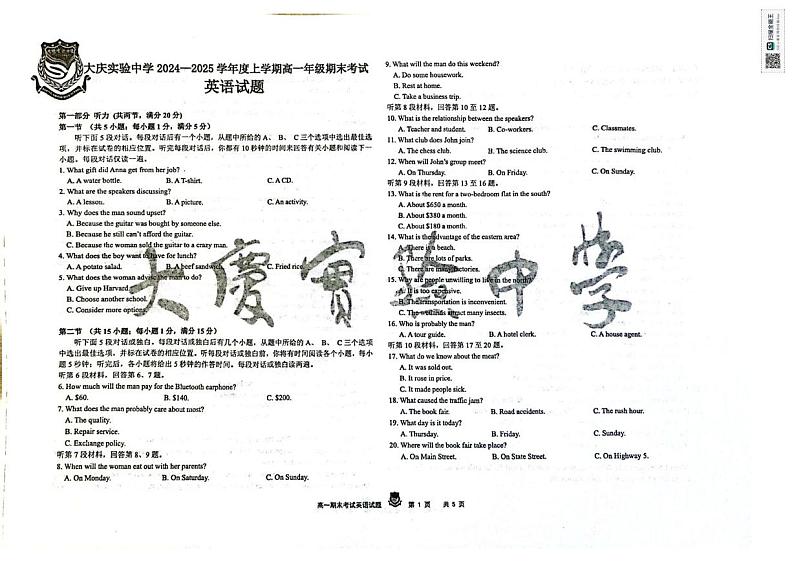 大庆实验中学 2024—2025 学年度上学期高一年级期末考试
英语试题
第一部分 听力 (共两节，满分 20 分)
第一节 （共 5 小题；每小题 1 分，满分 5 分）
听下面 5 段对话。每段对话后有一个小题，从题中所给的 A、 B、 C 三个选项中选出最佳选
项，并标在试卷的相应位置。听完每段对话后，你都有 10 秒钟的时间来回答有关小题和阅读下一
小题。每段对话仅读一遍。
1. What gift did Anna get from her job?
A. A water bottle. B. A T-shirt. C. A CD.
2. What are the speakers discussing?
A. A lesson. B. A picture. C. An activity.
3. Why does the man sound upset?
A. Because the guitar was bought by someone else.
B. Because he still can't afford the guitar.
C. Because the woman sold the guitar to a crazy man.
4. What does the boy want to have for lunch?
A. A potato salad. B. A beef sandwich. C. Fried rice.
5. What does the woman advise the man to do?
A. Give up Harvard.
B. Choose another school.
C. Consider more options.
第二节 （共 15 小题；每小题 1 分，满分 15 分）
听下面 5 段对话或独白。每段对话或独白后有几个小题，从题中所给的 A、 B、 C 三个选项
中选出最佳选项，并标在试卷的相应位置。听每段对话或独白前，你将有时间阅读各个小题，每小
题 5 秒钟；听完后，各小题将给出 5 秒钟的作答时间。每段对话或独白读两遍。
听第 6 段材料，回答第 6、7 题。
6. How much will the man pay for the Bluetooth earphone?
A. $60. B. $140. C. $200.
7. What does the man probably care about most?
A. The quality.
B. Repair service.
C. Exchange policy.
听第 7 段材料，回答第 8、9 题。
8. When will the woman eat out with her parents?
A. On Monday. B. On Saturday. C. On Sunday.
9. What will the man do this weekend?
A. Do some housework.
B. Rest at home.
C. Take a business trip.
听第 8 段材料，回答第 10 至 12 题。
10. What is the relationship between the speakers?
A. Teacher and student. B. Co-workers. C. Classmates.
11. What club does John join?
A. The chess club. B. The science club. C. The swimming club.
12. When will John's group meet?
A. On Thursday. B. On Friday. C. On Sunday.
听第 9 段材料，回答第 13 至 16 题。
13. What is the rent for a two-bedroom flat in the south?
A. About $650 a month.
B. About $380 a month.
C. About $180 a month.
14. What is the advantage of the eastern area?
A. There is a beach.
B. There are lots of parks.
C. There are many factories.
15. Why are people unwilling to live in the north?
A. It is too expensive.
B. The transportation is inconvenient.
C. The wetlands attract many insects.
16. Who is probably the man?
A. A tour guide. B. A hotel clerk. C. A house agent.
听第 10 段材料，回答第 17 至 20 题。
17. What do we know about the meat?
A. It was sold out.
B. It rose in price.
C. It made people sick.
18. What caused the traffic jam?
A. The book fair. B. Road accidents. C. The rush hour.
19. What day is it today?
A. Thursday. B. Friday. C. Sunday.
20. Where will the book fair take place?
A. On Main Street. B. On State Street. C. On Ninth Street.
大慶實驗中學
高一期末考试英语试题 第 1 页 共 5 页